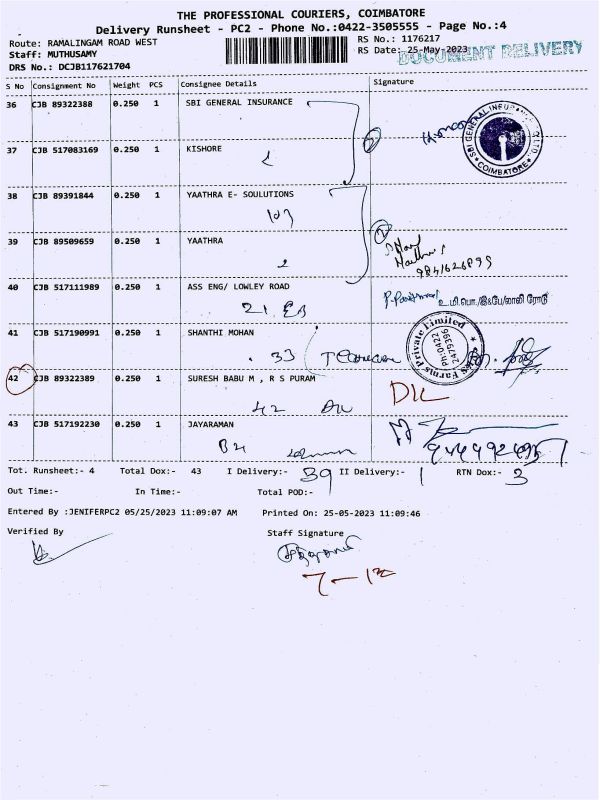 THE PROFESSIONAL COURIERS, COIMBATORE
Delivery Runsheet - PC2 - Phone No.:0422-3505555 - Page No.:4
Route: RAMALINGAM ROAD WEST
RS No.: 1176217
Staff: MUTHUSAMY
RS Date: 25-May-2023
DOCUMENT DELIVERY
DRS No.: DCJB117621704
S No Consignment No Weight PCS Consignee Details Signature
36 CJB 89322388 0.250 1 SBI GENERAL INSURANCE
SBI GENERAL INSURANCE
COIMBATORE
37 CJB 517083169 0.250 1 KISHORE
38 CJB 89391844 0.250 1 YAATHRA E- SOULUTIONS
107
39 CJB 89509659 0.250 1 YAATHRA
2
40 CJB 517111989 0.250 1 ASS ENG/ LOWLEY ROAD
21 EB
உ.மி.பொ./இ&பே/லாலி ரோடு
41 CJB 517190991 0.250 1 SHANTHI MOHAN
33
Farms Private Limited
PH:0422
2479396
42 CJB 89322389 0.250 1 SURESH BABU M , R S PURAM
42 DL
DL
43 CJB 517192230 0.250 1 JAYARAMAN
Tot. Runsheet:- 4 Total Dox:- 43 I Delivery:- 39 II Delivery:- 1 RTN Dox:- 3
Out Time:- In Time:- Total POD:-
Entered By :JENIFERPC2 05/25/2023 11:09:07 AM Printed On: 25-05-2023 11:09:46
Verified By Staff Signature